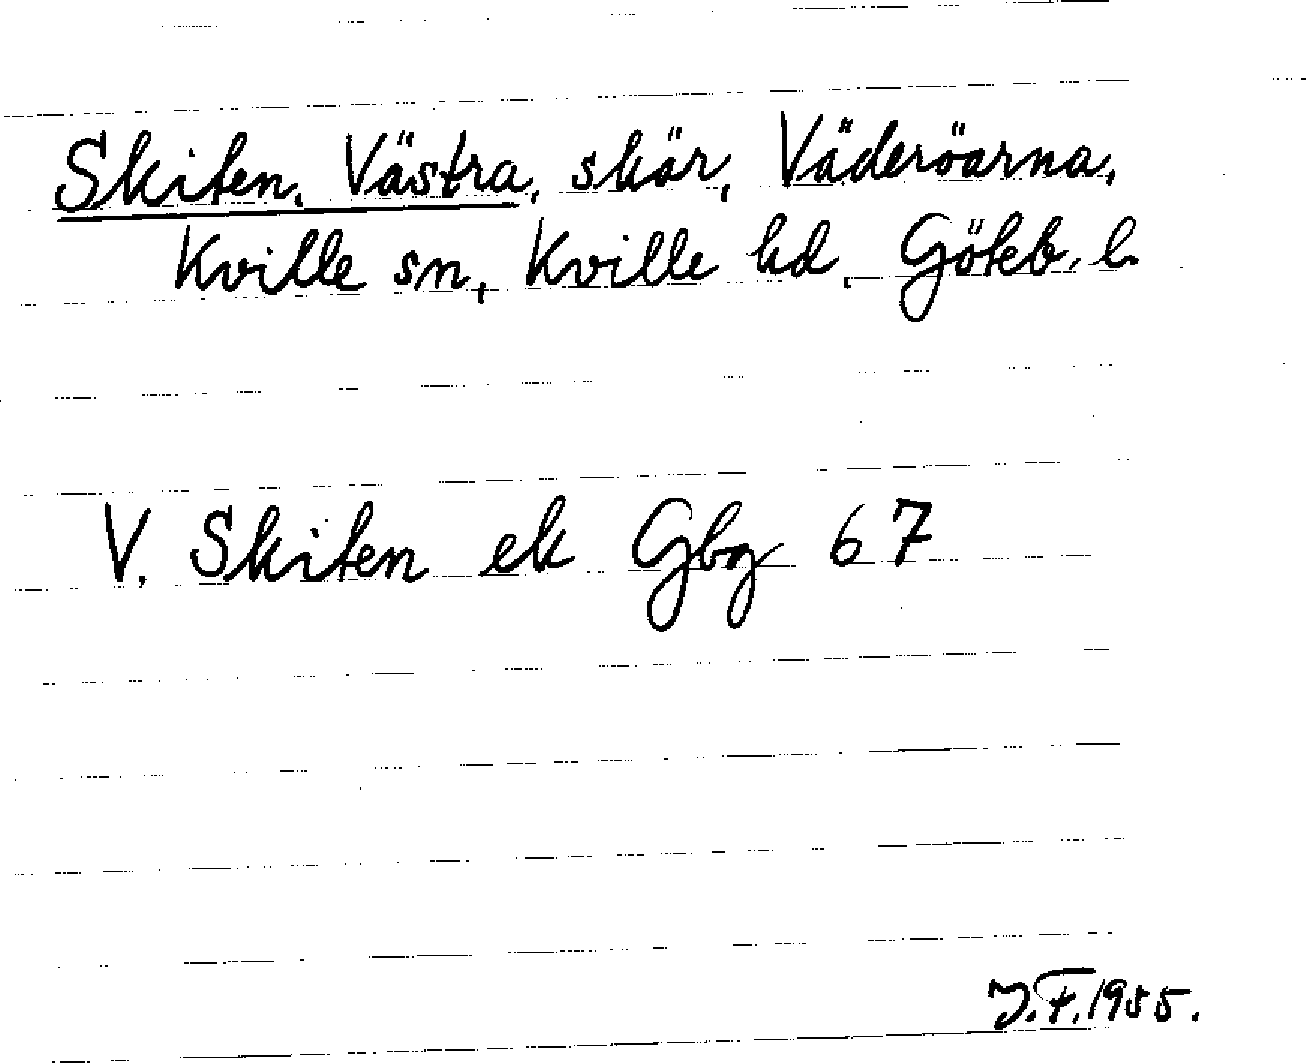 Skiten, Västra, skär, Väderöarna,
Kville sn, Kville hd, Göteb. l.
V. Skiten ek Gbg 67
J.F. 1955.